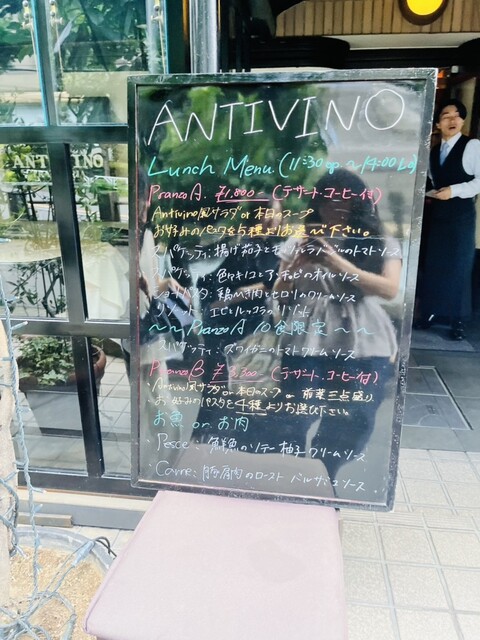 ANTIVINO
Lunch Menu (11:30 op ~ 14:00 Lo)
Pranzo A ¥1,800- (デザート・コーヒー付)
Antivino風サラダ or 本日のスープ
お好みのパスタを5種よりお選び下さい。
・スパゲッティ:揚げ茄子とモッツァレラ バジルのトマトソース
・スパゲッティ:色々キノコとアンチョビのオイルソース
・ショートパスタ:鶏ひき肉とセロリのクリームソース
・リゾット:エビとルッコラのリゾット
~~Pranzo A 10食限定~~
・スパゲッティ:ズワイガニのトマトクリームソース
Pranzo B (デザート・コーヒー付)
・Antivino風サラダ or 本日のスープ or 前菜三点盛り
・お好みのパスタを4種よりお選び下さい。
お魚 or お肉
・Pesce:鮮魚のソテー 柚子クリームソース
・Carne:豚肩肉のロースト バルサミコソース
ANTIVINO